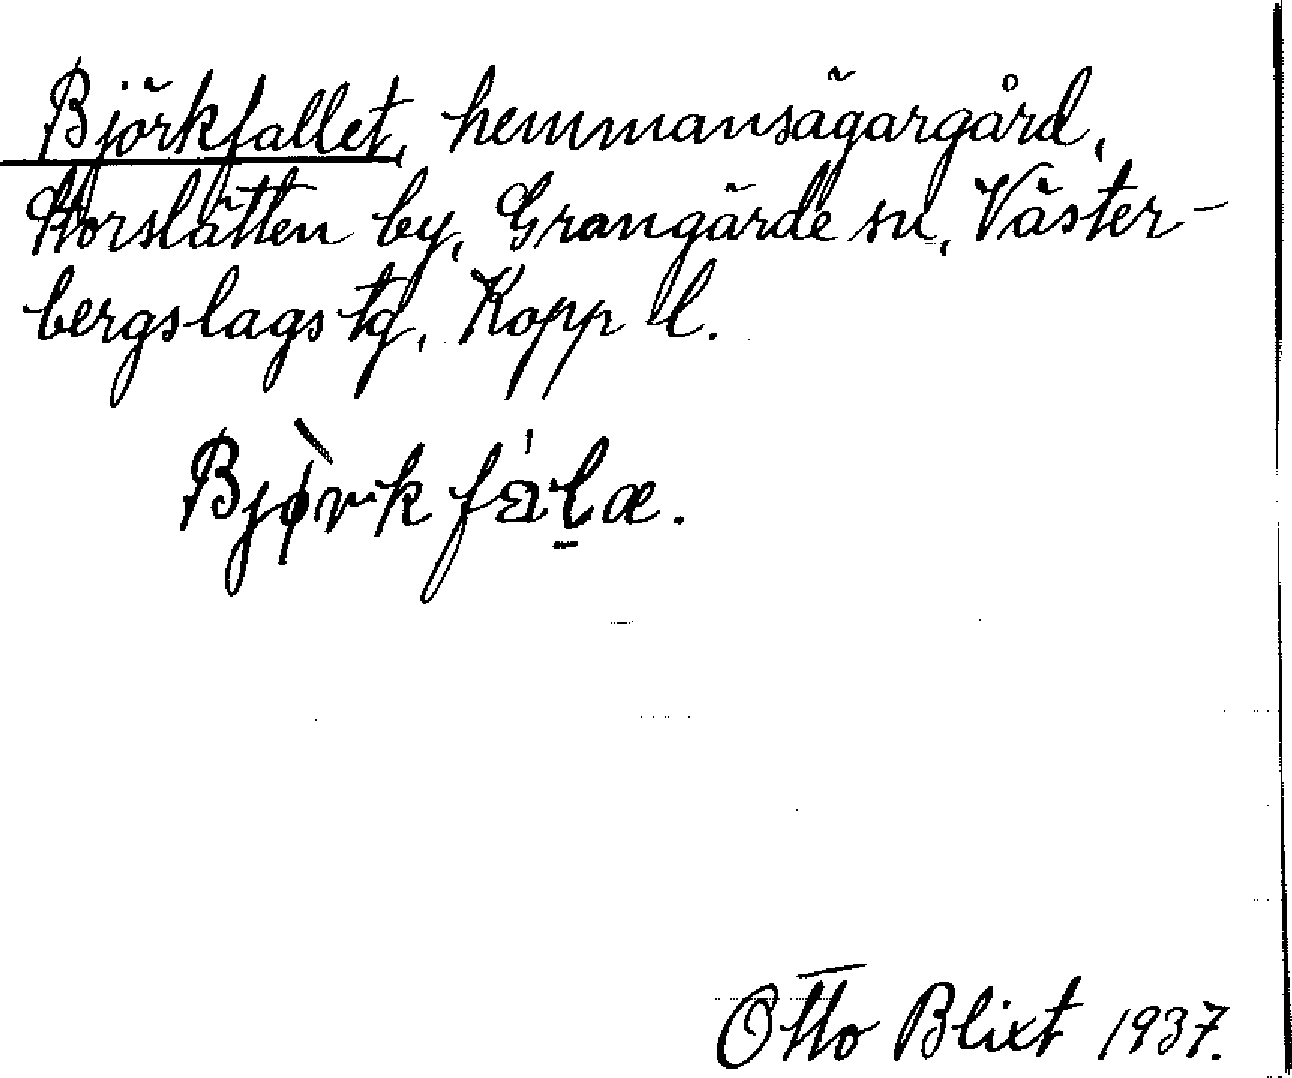 Björkfallet, hemmansägargård,
Storslätten by, Grangärde sn, Väster-
bergslags tg, Kopp l.
Bjø̀rkfálæ.
Otto Blixt 1937.